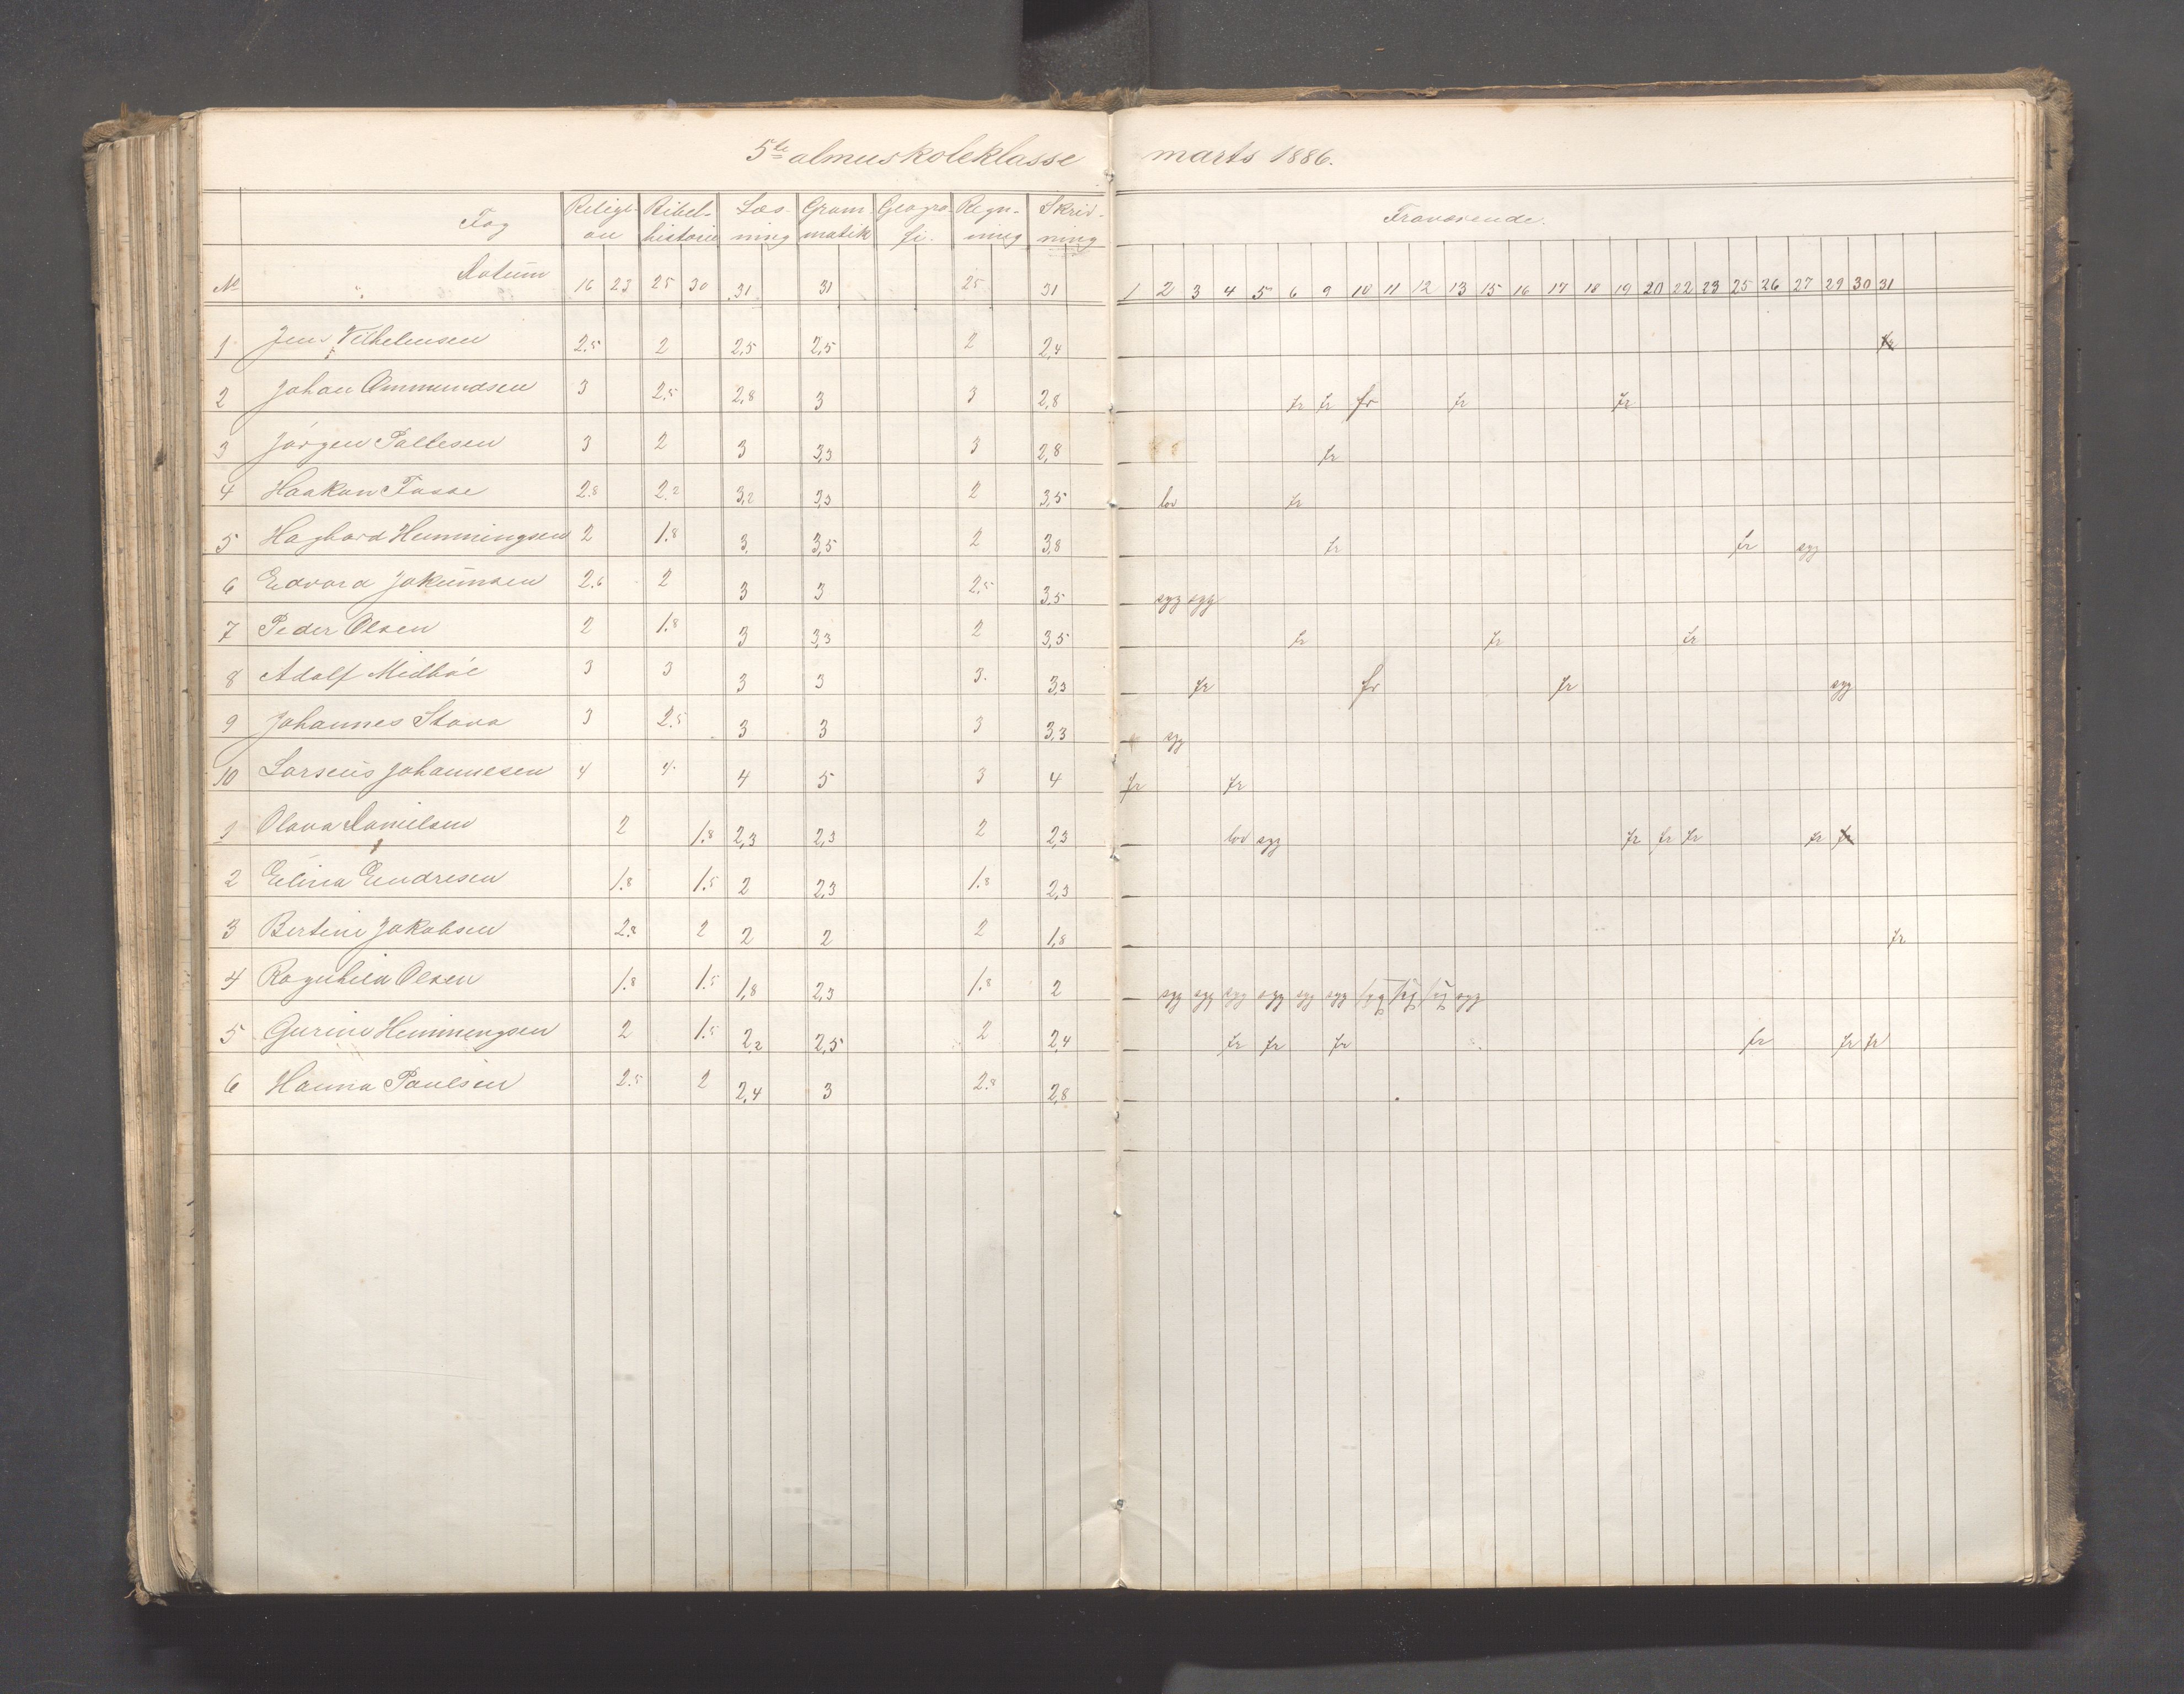 5te almueskoleklasse marts 1886.
Fag Religion Bibelhistorie Læsning Grammatik Geografi. Regning Skrivning Fraværende.
No Datum 16 23 25 30 31 31 25 31 1 2 3 4 5 6 9 10 11 12 13 15 16 17 18 19 20 22 23 25 26 27 29 30 31
1 Jens Vilhelmsen 2.5 2 2,5 2,5 2 2,4 fr
2 Johan Ommundsen 3 2.5 2,8 3 3 2,8 fr fr fr fr fr
3 Jörgen Pallesen 3 2 3 3,3 3 2,8 fr
4 Haakon Fosse 2.8 2.2 3,2 3,3 2 3,5 lov fr
5 Hagbard Hemmingsen 2 1.8 3 3,5 2 3,8 fr fr syg
6 Edvard Jokumsen 2.6 2 3 3 2,5 3,5 syg syg
7 Peder Olsen 2 1.8 3 3,3 2 3,5 fr fr fr
8 Adolf Midböe 3 3 3 3 3. 3,3 fr fr fr syg
9 Johannes Stava 3 2.5 3 3 3 3,3 syg
10 Larseus Johannesen 4 4. 4 5 3 4 fr fr
1 Olava Danielsen 2 1.8 2,3 2,3 2 2,3 lov syg fr fr fr fr fr
2 Elina Endresen 1.8 1.5 2 2,3 1.8 2,3
3 Bertine Jakobsen 2.8 2 2 2 2 1,8 fr
4 Ragnhild Olsen 1.8 1.5 1,8 2,3 1.8 2 syg syg syg syg syg syg syg syg syg syg
5 Gurine Hemmingsen 2 1.5 2,2 2,5 2 2,4 fr fr fr fr fr fr
6 Hanna Paulsen 2.5 2 2,4 3 2.8 2,8